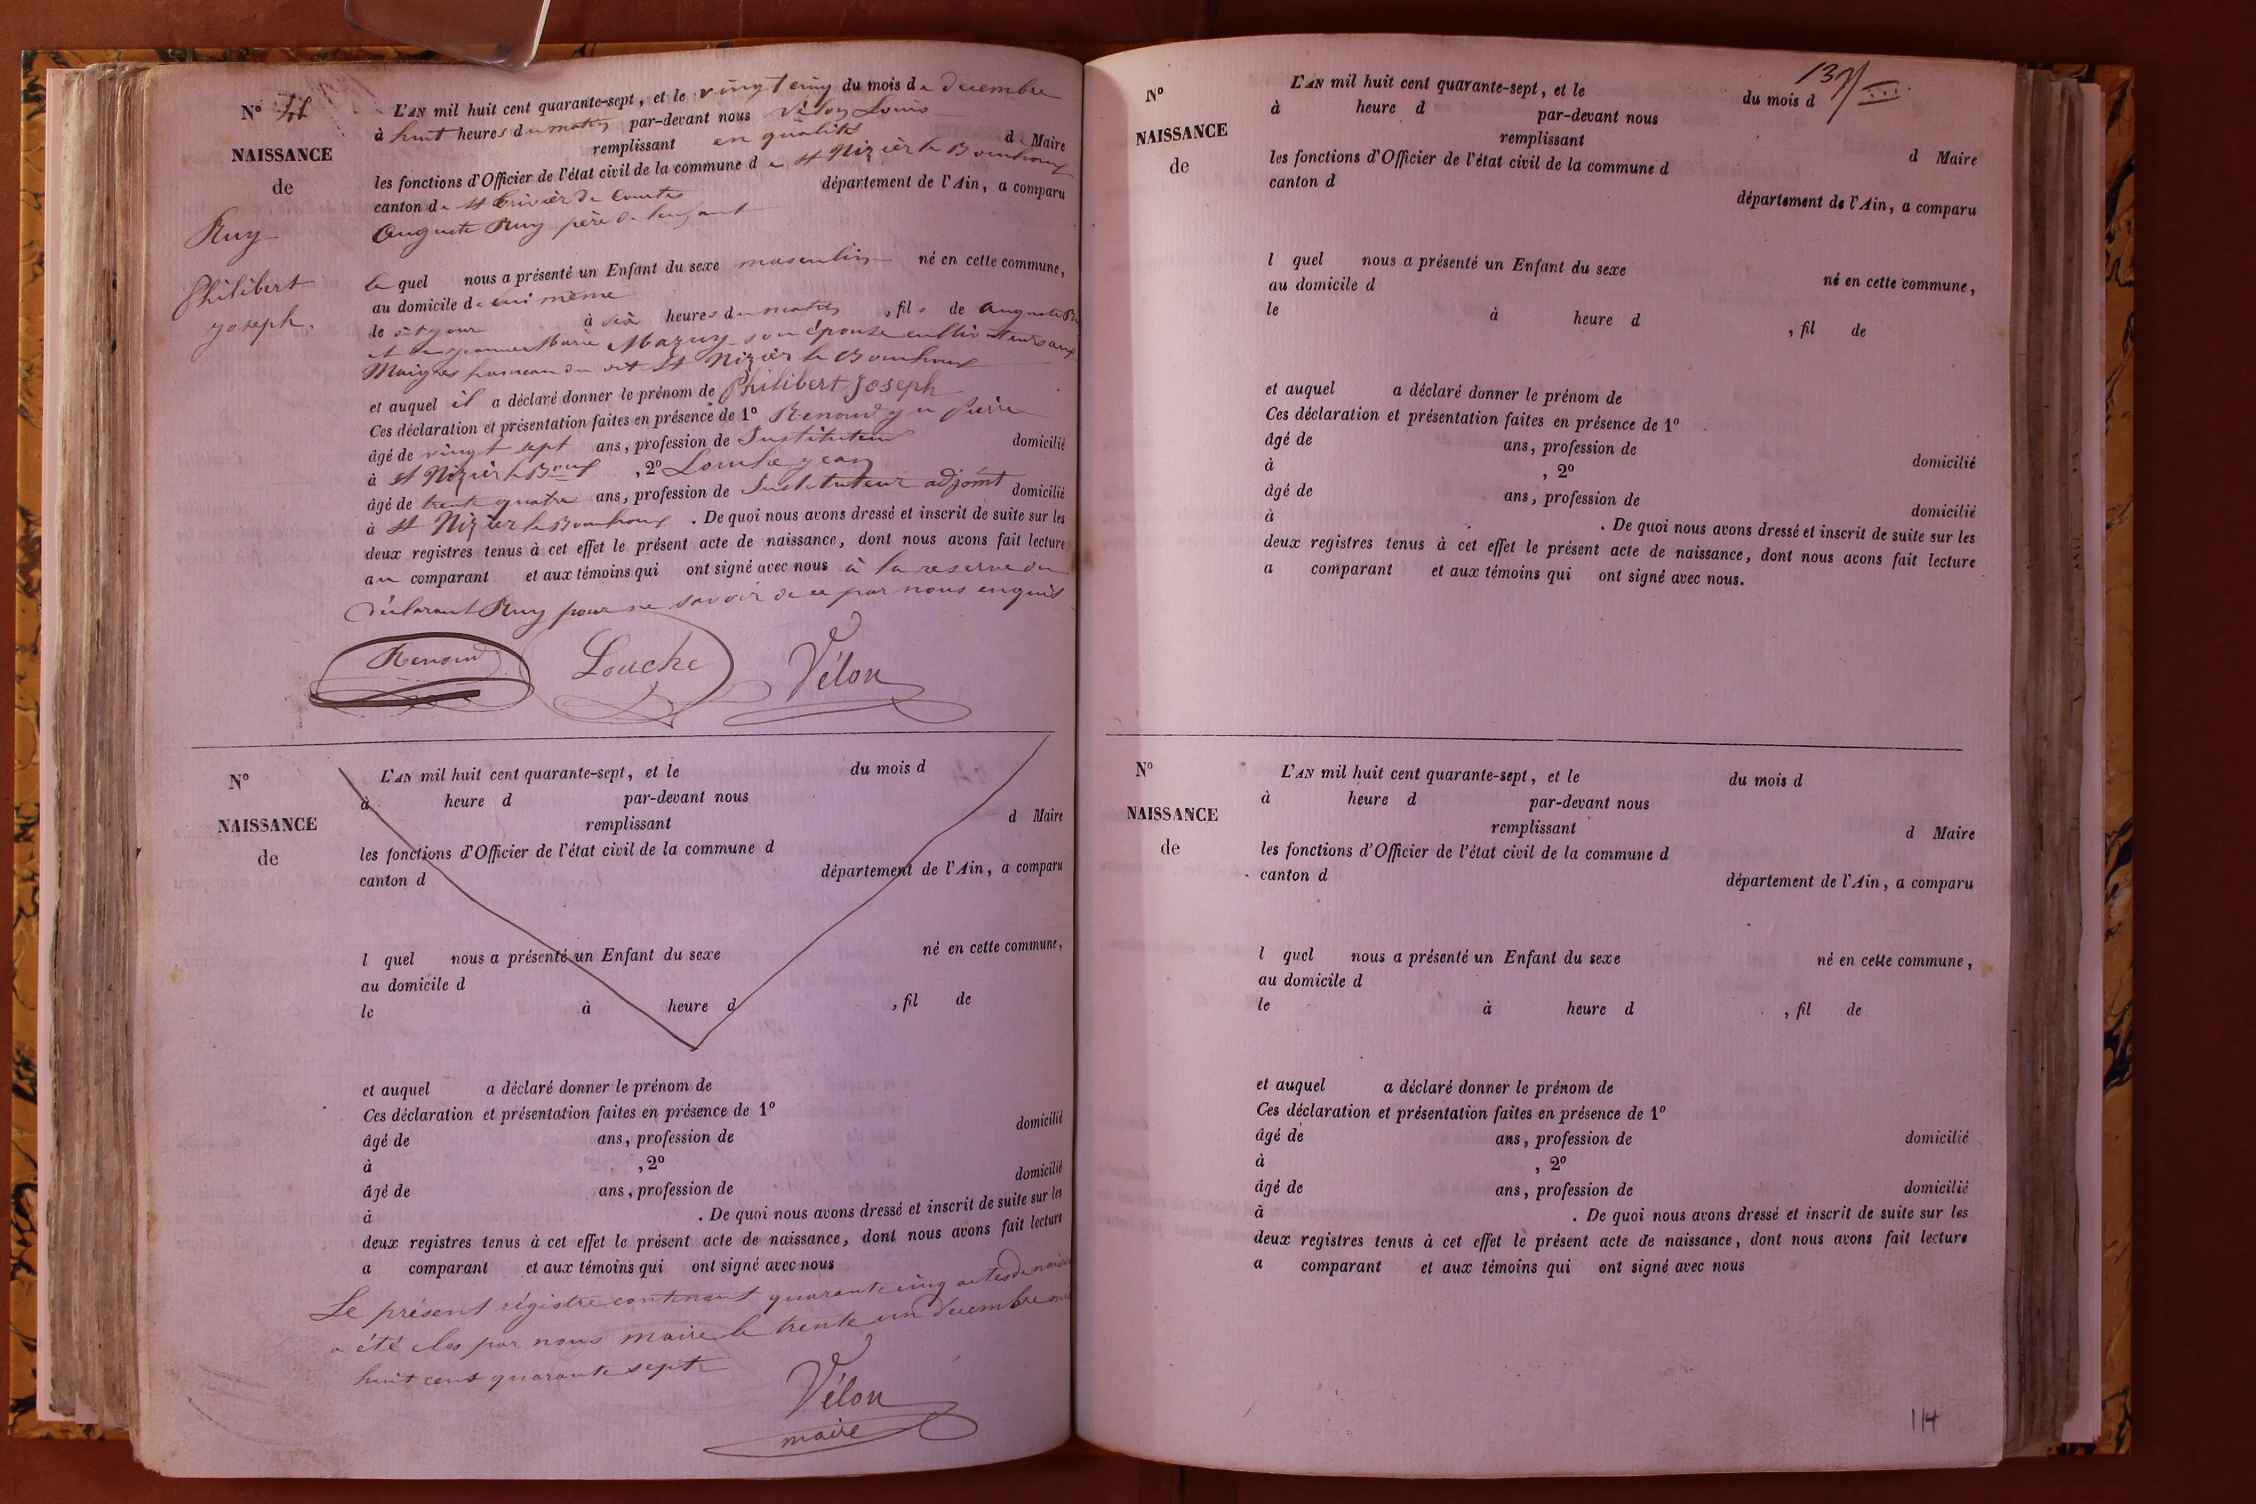 N°
NAISSANCE
de
Ruy
Philibert
Joseph.
L'AN mil huit cent quarante-sept, et le vingt cinq du mois de decembre
à huit heures du matin par-devant nous Vélon Louis
remplissant en qualité de Maire
les fonctions d'Officier de l'état civil de la commune de St Nizier le Bouchoux
canton de St Trivier de Courtes département de l'Ain, a comparu
Auguste Ruy père de l'enfant
le quel nous a présenté un Enfant du sexe masculin né en cette commune,
au domicile de lui même
le dit jour à six heures du matin, fils de Auguste Ruy
et de Marie Mazuy son épouse cultivateurs aux
Maigres hameau du dit St Nizier le Bouchoux
et auquel il a déclaré donner le prénom de Philibert Joseph
Ces déclaration et présentation faites en présence de 1° Renoud Pierre
âgé de vingt sept ans, profession de Instituteur domicilié
à St Nizier le Boux, 2° Louche Jean
âgé de trente quatre ans, profession de Instituteur adjoint domicilié
à St Nizier le Bouchoux. De quoi nous avons dressé et inscrit de suite sur les
deux registres tenus à cet effet le présent acte de naissance, dont nous avons fait lecture
au comparant et aux témoins qui ont signé avec nous à la reserve du
déclarant Ruy pour ne savoir de ce par nous enquis
Renoud Louche Vélon
N°
NAISSANCE
de
L'AN mil huit cent quarante-sept, et le du mois d
à heure d par-devant nous
remplissant d Maire
les fonctions d'Officier de l'état civil de la commune d
canton d département de l'Ain, a comparu
l quel nous a présenté un Enfant du sexe né en cette commune,
au domicile d
le à heure d , fil de
et auquel a déclaré donner le prénom de
Ces déclaration et présentation faites en présence de 1°
âgé de ans, profession de domicilié
à , 2°
âgé de ans, profession de domicilié
à . De quoi nous avons dressé et inscrit de suite sur les
deux registres tenus à cet effet le présent acte de naissance, dont nous avons fait lecture
a comparant et aux témoins qui ont signé avec nous
Le présent régistre contenant quarante cinq actes de
a été clos par nous maire le trente un decembre mil
huit cent quarante sept
Vélon
maire
137
N°
NAISSANCE
de
L'AN mil huit cent quarante-sept, et le du mois d
à heure d par-devant nous
remplissant d Maire
les fonctions d'Officier de l'état civil de la commune d
canton d département de l'Ain, a comparu
l quel nous a présenté un Enfant du sexe né en cette commune,
au domicile d
le à heure d , fil de
et auquel a déclaré donner le prénom de
Ces déclaration et présentation faites en présence de 1°
âgé de ans, profession de domicilié
à , 2°
âgé de ans, profession de domicilié
à . De quoi nous avons dressé et inscrit de suite sur les
deux registres tenus à cet effet le présent acte de naissance, dont nous avons fait lecture
a comparant et aux témoins qui ont signé avec nous.
N°
NAISSANCE
de
L'AN mil huit cent quarante-sept, et le du mois d
à heure d par-devant nous
remplissant d Maire
les fonctions d'Officier de l'état civil de la commune d
canton d département de l'Ain, a comparu
l quel nous a présenté un Enfant du sexe né en cette commune,
au domicile d
le à heure d , fil de
et auquel a déclaré donner le prénom de
Ces déclaration et présentation faites en présence de 1°
âgé de ans, profession de domicilié
à , 2°
âgé de ans, profession de domicilié
à . De quoi nous avons dressé et inscrit de suite sur les
deux registres tenus à cet effet le présent acte de naissance, dont nous avons fait lecture
a comparant et aux témoins qui ont signé avec nous
114